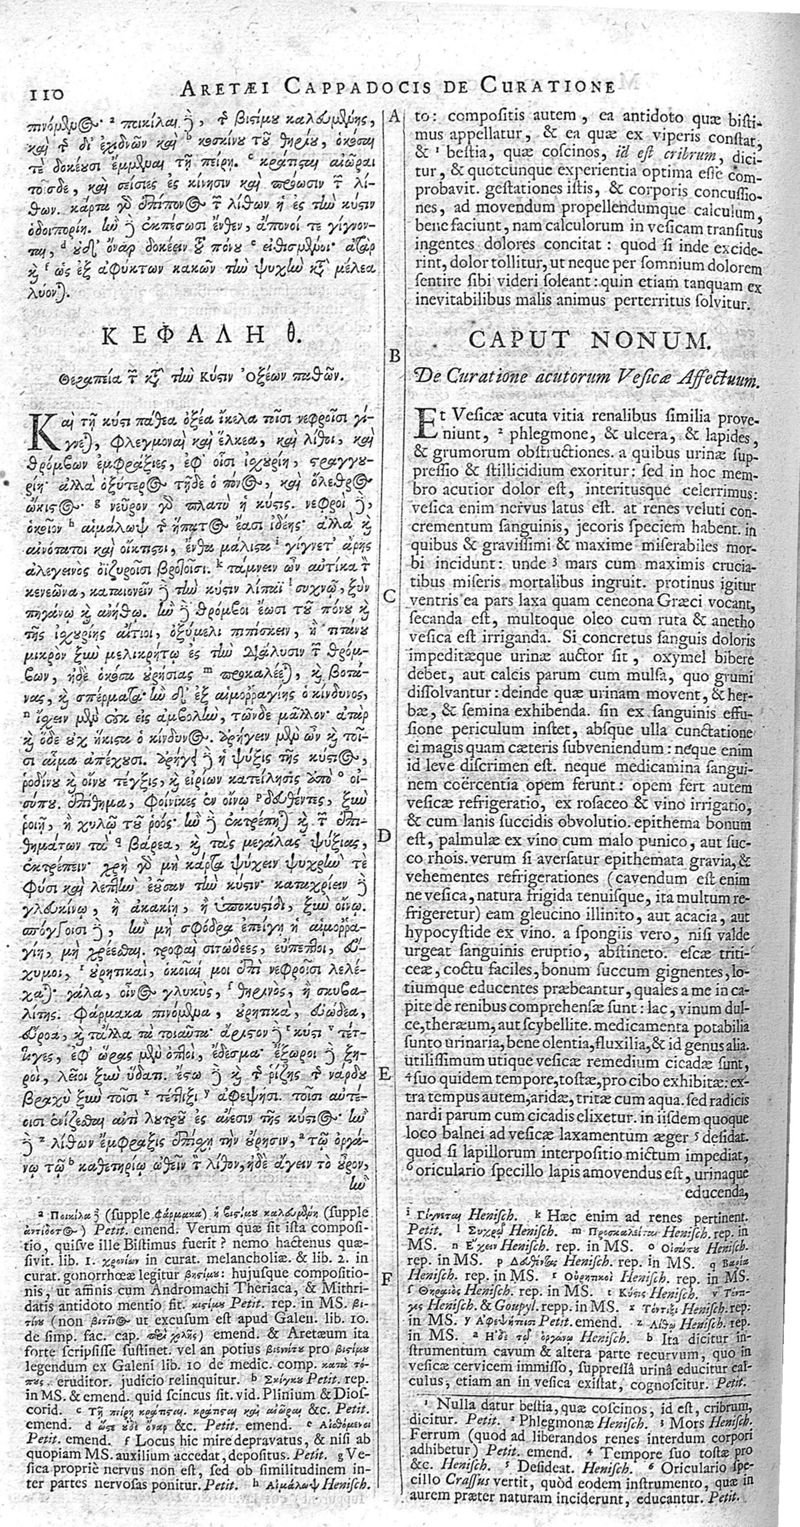 110 ARETÆI CAPPADOCIS DE CURATIONE
πινόμενος· ² ποικίλαι δὲ, τῆς βισίμου καλουμένης,
καὶ τῆς δι' ἐχιδνῶν καὶ ᵇ κοσκίνου τοῦ θηρίου, ὁκόσαι
τε δοκέουσι ἔμμεναι τῇ πείρῃ. ᶜ κράτισται αἰῶραι
τοῖσδε, καὶ σείσιες ἐς κίνησιν καὶ πρόωσιν τῶν λί-
θων. κάρτα γὰρ ἐπίπονος τῶν λίθων ἡ ἐς τὴν κύστιν
ὁδοιπορίη. ἢν δὲ ἐκπέσωσι ἔνθεν, ἄπονοί τε γίγνον-
ται, ᵈ οὐδ' ὄναρ δοκέειν τοῦ πόνου ᵉ εἰθισμένοι· ἀτὰρ
καὶ ᶠ ὡς ἐξ ἀφύκτων κακῶν τὴν ψυχὴν κατὰ μέλεα
λύονται.
ΚΕΦΑΛΗ θ.
Θεραπεία τῶν κατὰ τὴν Κύστιν Ὀξέων παθῶν.
Καὶ τῇ κύστι πάθεα ὀξέα ἴκελα τοῖσι νεφροῖσι γί-
γνεται, φλεγμοναὶ καὶ ἕλκεα, καὶ λίθοι, καὶ
θρόμβων ἐμφράξιες, ἐφ' οἷσι ἰσχουρίη, στραγγου-
ρίη· ἀλλὰ ὀξύτερος τῇδε ὁ πόνος, καὶ ὄλεθρος
ὤκιστος· ᵍ νεῦρον γὰρ πλατὺ ἡ κύστις. νεφροὶ δὲ,
ὁκοῖον ʰ αἱμάλωψ τοῦ ἥπατος ἔασι ἰδέης· ἀλλὰ καὶ
αἰνότατοι καὶ οἴκτιστοι, ἔνθα μάλιστα ⁱ γίγνετ' ἄρης
ἀλεγεινὸς ὀϊζυροῖσι βροτοῖσι. ᵏ τάμνειν ὦν αὐτίκα τὸν
κενεῶνα, καταιονεῖν δὲ τὴν κύστιν λίπαϊ ˡ συχνῷ, ξὺν
πηγάνῳ καὶ ἀνήθῳ. ἢν δὲ θρόμβοι ἔωσι τοῦ πόνου καὶ
τῆς ἰσχουρίης αἴτιοι, ὀξύμελι πιπίσκειν, ἢ τιτάνου
μικρὸν ξὺν μελικρήτῳ ἐς τὴν διάλυσιν τῶν θρόμ-
βων, ἠδὲ ὁκόσα οὐρήσιας ᵐ προκαλέεται, καὶ βοτά-
νας, καὶ σπέρματα. ἢν δ' ἐξ αἱμορραγίης ὁ κίνδυνος,
ⁿ ἴσχειν μὲν οὐκ εἰς ἀμβολὴν, τῶνδε μᾶλλον· ἀτὰρ
καὶ ὅδε οὐχ ἥκιστα ὁ κίνδυνος. ἀρήγειν μὲν ὦν καὶ τοῖ-
σι αἷμα ἀπέχουσι. ἀρήγει δὲ ἡ ψῦξις τῆς κύστιος,
ῥοδίνου καὶ οἴνου τέγξις, καὶ εἰρίων κατείλησις ἀπὸ ᵒ οἰ-
σύπου. ἐπίθημα, φοίνικες ἐν οἴνῳ ᵖ δευθέντες, ξὺν
ῥοιῇ, ἢ χυλῷ τοῦ ῥοός. ἢν δὲ ἐκτρέπηται καὶ τῶν ἐπι-
θημάτων τὰ ᑫ βάρεα, καὶ τὰς μεγάλας ψύξιας,
ἐκτρέπειν· χρὴ γὰρ μὴ κάρτα ψύχειν ψυχρὴν τε
φύσι καὶ λεπτὴν ἐοῦσαν τὴν κύστιν· καταχρίειν δὲ
γλευκίνῳ, ἢ ἀκακίῃ, ἢ ὑποκυστίδι, ξὺν οἴνῳ.
σπόγγοισι δὲ, ἢν μὴ σφόδρα ἐπείγῃ ἡ αἱμορρα-
γίη, μὴ χρέεσθαι. τροφαὶ σιτώδεες, εὔπεπτοι, εὔ-
χυμοι, ʳ οὐρητικαὶ, ὁκοῖαί μοι ἐπὶ νεφροῖσι λελέ-
χαται· γάλα, οἶνος γλυκὺς, ˢ θηρινὸς, ἢ σκυβε-
λίτης. φάρμακα πινόμενα, οὐρητικὰ, εὐώδεα,
εὔροα, καὶ τἄλλα τὰ τοιαῦτα· ἄριστον δὲ ᵗ κύστι ᵛ τέτ-
τιγες, ἐφ' ὥρας μὲν ὀπτοὶ, ἔδεσμα· ἔξωροι δὲ ξη-
ροὶ, λεῖοι ξὺν ὕδατι. ἔστω δὲ καὶ τῆς ῥίζης τῆς νάρδου
βραχὺ ξὺν τοῖσι ˣ τέττιξι ʸ ἀφεψήσι. τοῖσι αὐτέ-
οισι ἐνίζεσθαι ἀντὶ λουτροῦ ἐς ἄνεσιν τῆς κύστιος· ἢν
δὲ ᶻ λίθων ἔμφραξις ἐπίσχῃ τὴν οὔρησιν, ᵃ τῷ ὀργά-
νῳ τῷ ᵇ καθετηρίῳ ὠθεῖν τὸν λίθον, ἠδὲ ἄγειν τὸ οὖρον,
ἢν
A
B
C
D
E
F
to: compositis autem, ea antidoto quæ bisti-
mus appellatur, & ea quæ ex viperis constat,
& ¹ bestia, quæ coscinos, id est cribrum, dici-
tur, & quotcunque experientia optima esse com-
probavit. gestationes istis, & corporis concussio-
nes, ad movendum propellendumque calculum,
bene faciunt, nam calculorum in vesicam transitus
ingentes dolores concitat: quod si inde excide-
rint, dolor tollitur, ut neque per somnium dolorem
sentire sibi videri soleant: quin etiam tanquam ex
inevitabilibus malis animus perterritus solvitur.
CAPUT NONUM.
De Curatione acutorum Vesicæ Affectuum.
Et Vesicæ acuta vitia renalibus similia prove-
niunt, ² phlegmone, & ulcera, & lapides,
& grumorum obstructiones. a quibus urinæ sup-
pressio & stillicidium exoritur: sed in hoc mem-
bro acutior dolor est, interitusque celerrimus:
vesica enim nervus latus est. at renes veluti con-
crementum sanguinis, jecoris speciem habent. in
quibus & gravissimi & maxime miserabiles mor-
bi incidunt: unde ³ mars cum maximis crucia-
tibus miseris mortalibus ingruit. protinus igitur
ventris ea pars laxa quam ceneona Græci vocant,
secanda est, multoque oleo cum ruta & anetho
vesica est irriganda. Si concretus sanguis doloris
impeditæque urinæ auctor sit, oxymel bibere
debet, aut calcis parum cum mulsa, quo grumi
dissolvantur: deinde quæ urinam movent, & her-
bæ, & semina exhibenda. sin ex sanguinis effu-
sione periculum instet, absque ulla cunctatione
ei magis quam cæteris subveniendum: neque enim
id leve discrimen est. neque medicamina sangui-
nem coërcentia opem ferunt: opem fert autem
vesicæ refrigeratio, ex rosaceo & vino irrigatio,
& cum lanis succidis obvolutio. epithema bonum
est, palmulæ ex vino cum malo punico, aut suc-
co rhois. verum si aversatur epithemata gravia, &
vehementes refrigerationes (cavendum est enim
ne vesica, natura frigida tenuisque, ita multum re-
frigeretur) eam gleucino illinito, aut acacia, aut
hypocystide ex vino. a spongiis vero, nisi valde
urgeat sanguinis eruptio, abstineto. escæ triti-
ceæ, coctu faciles, bonum succum gignentes, lo-
tiumque educentes præbeantur, quales a me in ca-
pite de renibus comprehensæ sunt: lac, vinum dul-
ce, theræum, aut scybellite. medicamenta potabilia
sunto urinaria, bene olentia, fluxilia, & id genus alia.
utilissimum utique vesicæ remedium cicadæ sunt,
⁴ suo quidem tempore, tostæ, pro cibo exhibitæ: ex-
tra tempus autem, aridæ, tritæ cum aqua. sed radicis
nardi parum cum cicadis elixetur. in iisdem quoque
loco balnei ad vesicæ laxamentum æger ⁵ desidat.
quod si lapillorum interpositio mictum impediat,
⁶ oriculario specillo lapis amovendus est, urinaque
educenda,
a Ποικίλαι δὲ (supple φάρμακα) ἡ βισίμου καλουμένη (supple
ἀντίδοτος) Petit. emend. Verum quæ sit ista composi-
tio, quisve ille Bistimus fuerit? nemo hactenus quæ-
sivit. lib. 1. χρονίων in curat. melancholiæ. & lib. 2. in
curat. gonorrhœæ legitur βησίμου: hujusque compositio-
nis, ut affinis cum Andromachi Theriaca, & Mithri-
datis antidoto mentio fit. Petit. rep. in MS.
(non ut excusum est apud Galen. lib. 10.
de simp. fac. cap. ) emend. & Aretæum ita
forte scripsisse sustinet. vel an potius pro
legendum ex Galeni lib. 10 de medic. comp. κατὰ τό-
πους. eruditor. judicio relinquitur. b Σκίγκου Petit. rep.
in MS. & emend. quid scincus sit. vid. Plinium & Dios-
corid. c Τῇ πείρῃ κράτισται. κράτισται καὶ αἰῶραι &c. Petit.
emend. d ὥστε οὐδὲ ὄναρ &c. Petit. emend. e
Petit. emend. f Locus hic mire depravatus, & nisi ab
quopiam MS. auxilium accedat, depositus. Petit. g Ve-
sica propriè nervus non est, sed ob similitudinem in-
ter partes nervosas ponitur. Petit. h Αἱμάλωψ Henisch.
i Γίγνεται Henisch. k Hæc enim ad renes pertinent.
Petit. l Συχνῷ Henisch. m Προσκαλέεται Henisch. rep. in
in MS. n Ἔχειν Henisch. rep. in MS. o Οἰσύπου Henisch.
rep. in MS. p Henisch. rep. in MS. q Βαρέα
Henisch. rep. in MS. r Οὐρητικοὶ Henisch. rep. in MS.
s Θηραῖος Henisch. rep. in MS. t Κύστις Henisch. v Τέττι-
γες Henisch. & Goupyl. repp. in MS. x Τέττιξι Henisch. rep.
in MS. y Petit. emend. z Λίθῳ Henisch. rep.
in MS. a Ἠδὲ τῷ ὀργάνῳ Henisch. b Ita dicitur in-
strumentum cavum & altera parte recurvum, quo in
vesicæ cervicem immisso, suppressâ urinâ educitur cal-
culus, etiam an in vesica existat, cognoscitur. Petit.
1 Nulla datur bestia, quæ coscinos, id est, cribrum,
dicitur. Petit. 2 Phlegmonæ Henisch. 3 Mors Henisch.
Ferrum (quod ad liberandos renes interdum corpori
adhibetur) Petit. emend. 4 Tempore suo tostæ pro
&c. Henisch. 5 Desideat. Henisch. 6 Oriculario spe-
cillo Crassus vertit, quòd eodem instrumento, quæ in
aurem præter naturam inciderunt, educantur. Petit.